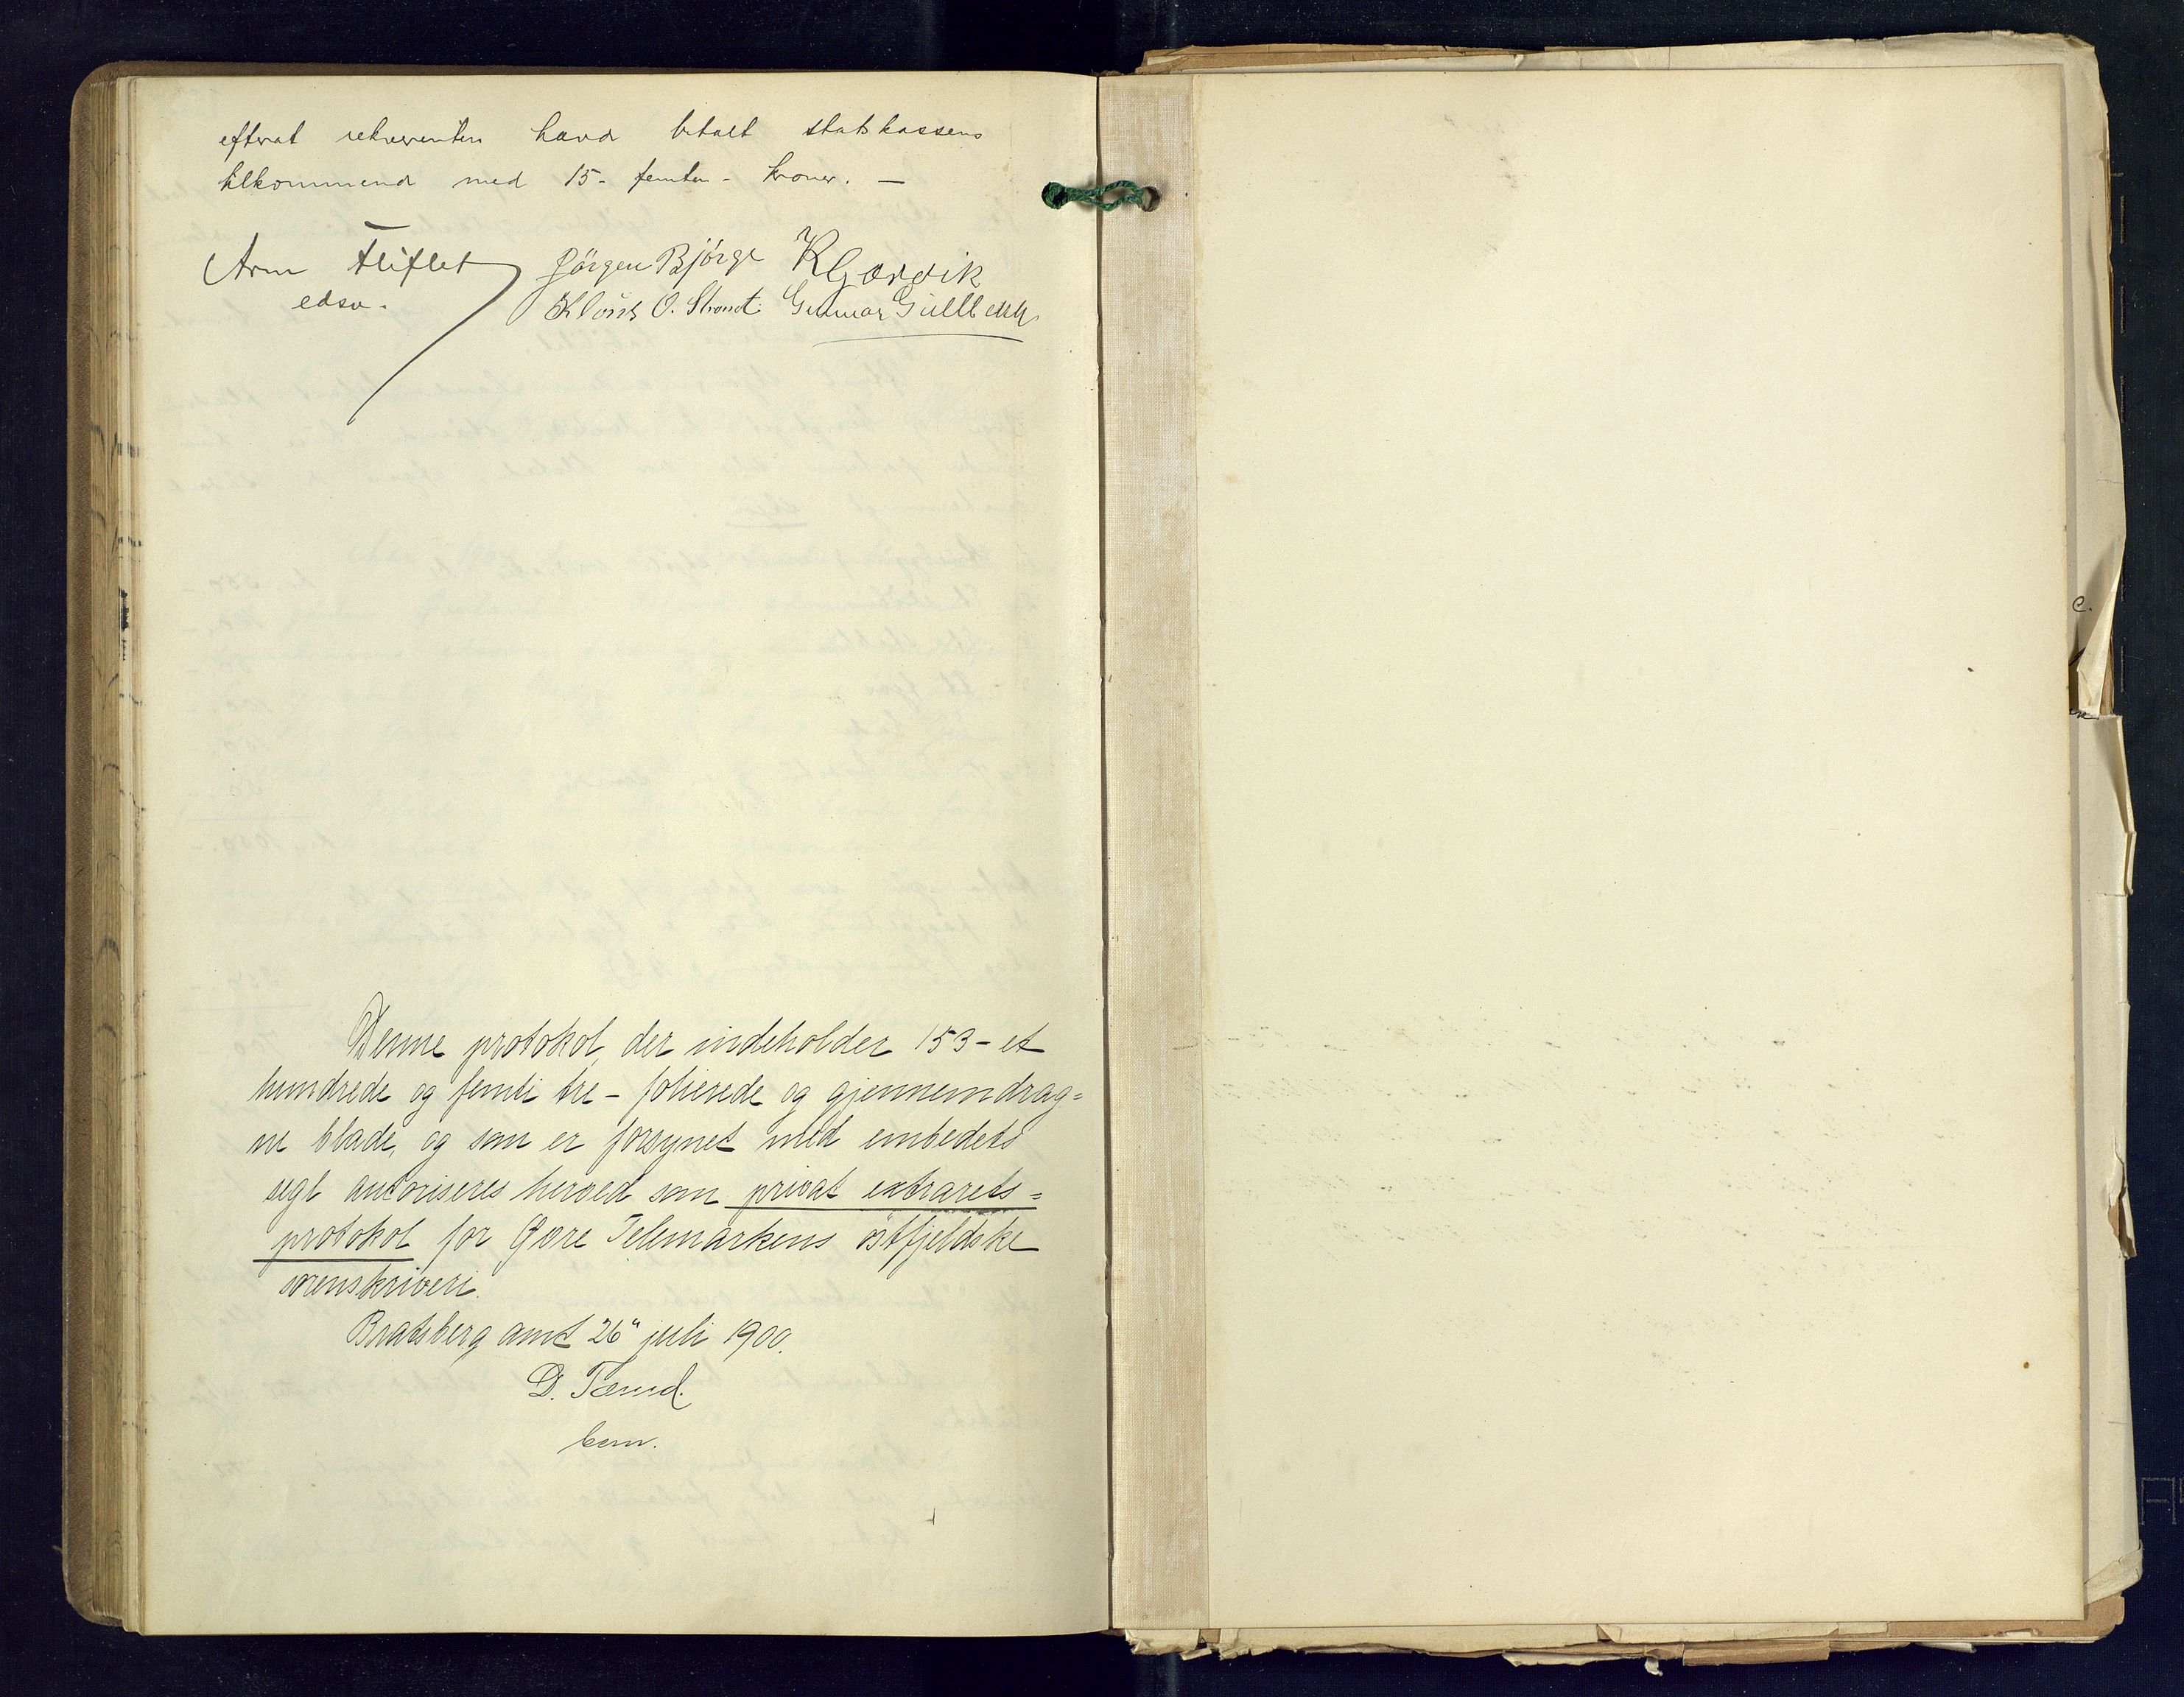 efterat rekvirenten havde betalt statskassens
tilkommende med 15 - femten - kroner. —
Arne Fliflet Jörgen Björge K Gardvik
edsv. O. Strand. Gunnar Gullbekk
Denne protokol, der indeholder 153 - et
hundrede og femti tre - folierede og gjennemdrag=
ne blade, og som er forsynet med embedets
segl autoriseres herved som privat extrarets=
protokol for Øvre Telemarkens østfjeldske
sorenskriveri.
Bratsberg amt 26" juli 1900.
D.